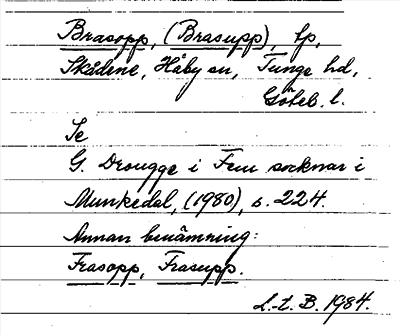 Brasopp, (Brasupp), lp,
Skådene, Håby sn, Tunge hd,
Göteb. l.
Se
G. Drougge i Fem socknar i
Munkedal, (1980), s. 224.
Annan benämning:
Frasopp, Frasupp.
L.-t. B. 1984.